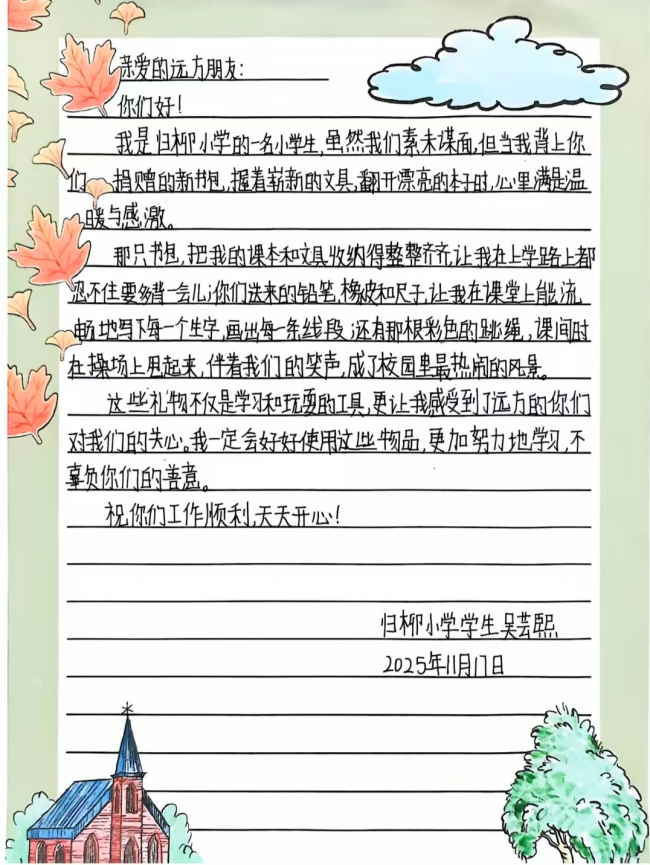 亲爱的远方朋友:
你们好!
我是归柳小学的一名小学生,虽然我们素未谋面,但当我背上你
们捐赠的新书包,握着崭新的文具,翻开漂亮的本子时,心里满是温
暖与感激。
那只书包,把我的课本和文具收纳得整整齐齐,让我在上学路上都
忍不住要多背一会儿;你们送来的铅笔、橡皮和尺子,让我在课堂上能流
畅地写下每一个生字,画出每一条线段;还有那根彩色的跳绳,课间时
在操场上甩起来,伴着我们的笑声,成了校园里最热闹的风景。
这些礼物不仅是学习和玩耍的工具,更让我感受到了远方的你们
对我们的关心。我一定会好好使用这些物品,更加努力地学习,不
辜负你们的善意。
祝你们工作顺利,天天开心!
归柳小学学生吴芸熙
2025年11月17日